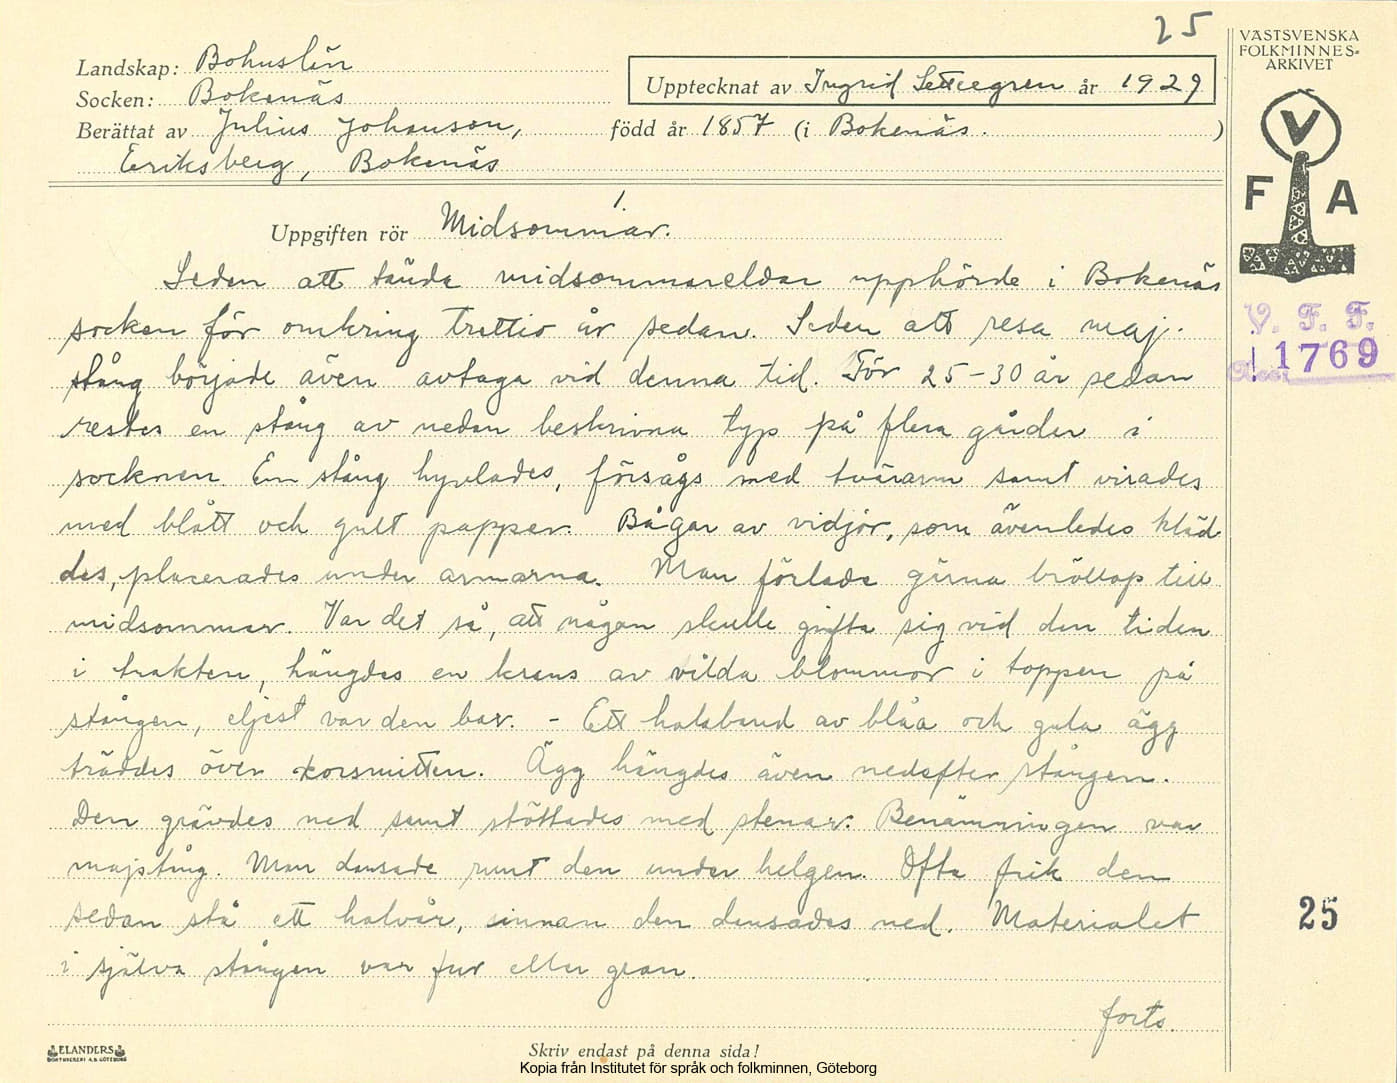 25
VÄSTSVENSKA
FOLKMINNES-
ARKIVET
Landskap: Bohuslän
Socken: Bokenäs
Upptecknat av Ingrid år 1929
Berättat av Julius Johanson, född år 1857 (i Bokenäs. )
Eriksberg, Bokenäs
V
F A
1.
Uppgiften rör Midsommar.
Seden att tända midsommareldar upphörde i Bokenäs
V. F. F.
socken för omkring trettio år sedan. Seden att resa maj-
1769
stång började även avtaga vid denna tid. För 25-30 år sedan
restes en stång av nedan beskrivna typ på flera gårdar i
socknen. En stång hyvlades, försågs med tvärarm samt virades
med blått och gult papper. Bågar av vidjor, som ävenledes kläd-
des, placerades under armarna. Man förlade gärna bröllop till
midsommar. Var det så, att någon skulle gifta sig vid den tiden
i trakten, hängdes en krans av vilda blommor i toppen på
stången, eljest var den bar. - Ett halsband av blåa och gula ägg
träddes över korsmitten. Ägg hängdes även nedefter stången.
Den grävdes ned samt stöttades med stenar. Benämningen var
majstång. Man dansade runt den under helgen. Ofta fick den
sedan stå ett halvår, innan den dansades ned. Materialet
25
i själva stången var fur eller gran.
forts.
ELANDERS
BOKTRYCKERI A.B. GÖTEBORG
Skriv endast på denna sida!
Kopia från Institutet för språk och folkminnen, Göteborg